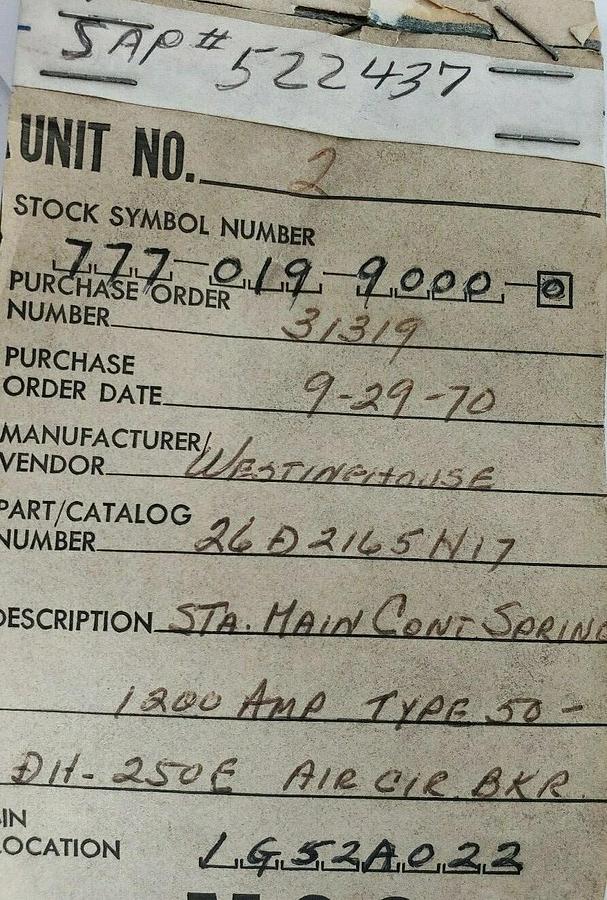 SAP # 522437
UNIT NO. 2
STOCK SYMBOL NUMBER
777-019-9000-0
PURCHASE ORDER
NUMBER 31319
PURCHASE
ORDER DATE 9-29-70
MANUFACTURER/
VENDOR WESTINGHOUSE
PART/CATALOG
NUMBER 26D2165H17
DESCRIPTION STA. MAIN CONT SPRING
1200 AMP TYPE 50-
DH-250E AIR CIR BKR
IN
LOCATION 1G52A022